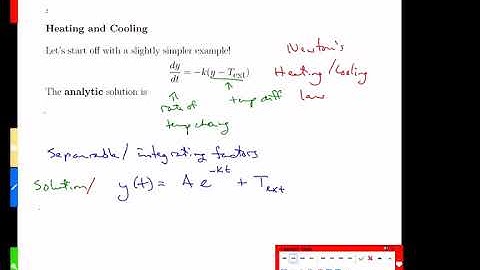 2
Heating and Cooling
Let's start off with a slightly simpler example!
Newton's
dy/dt = -k(y - T_ext)
Heating / Cooling
law
The analytic solution is
rate of
temp change
temp diff
Separable / integrating factors
Solution/ y(t) = A e^{-kt} + T_ext